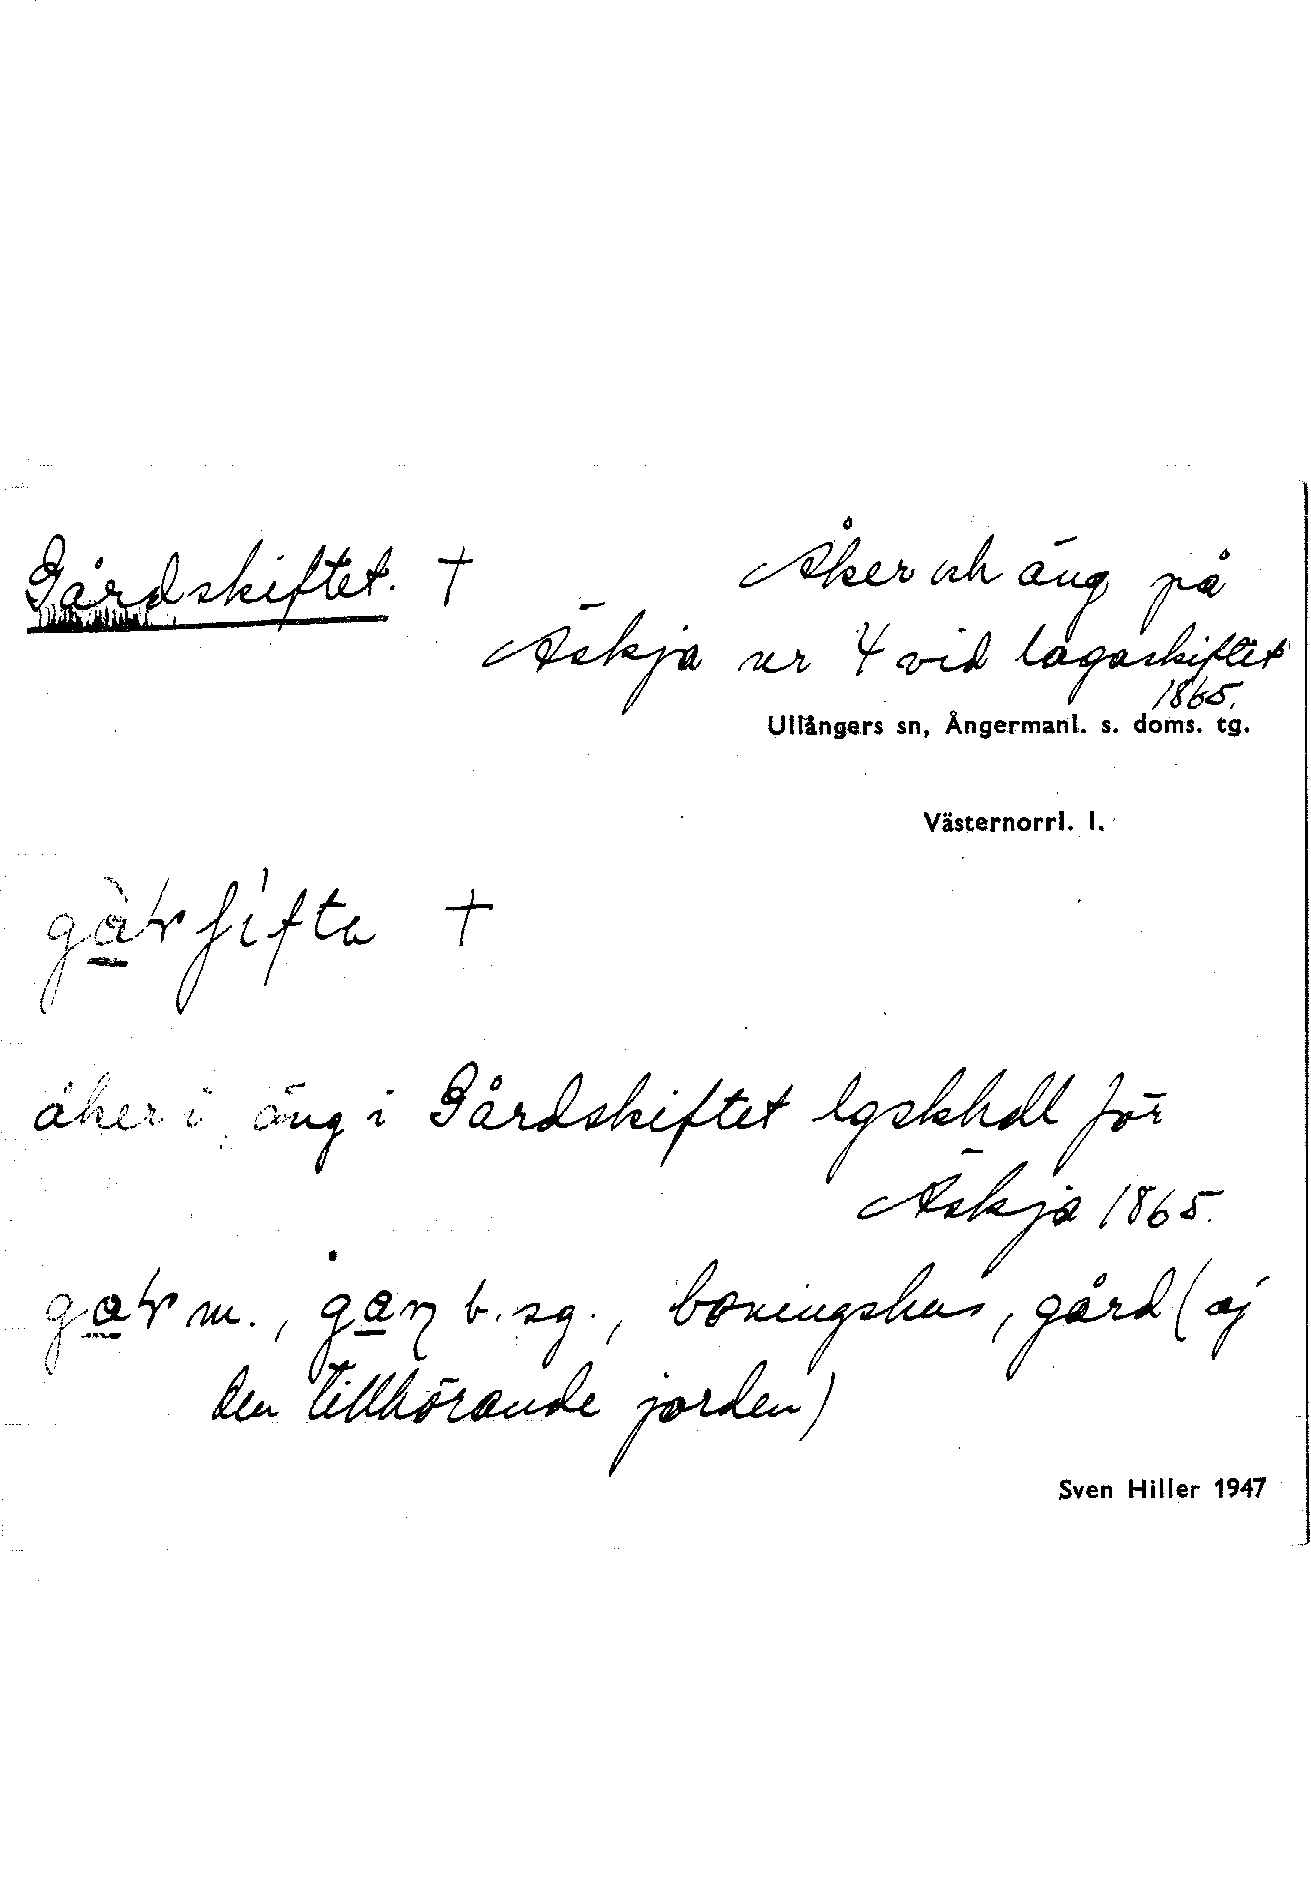 Gårdskiftet. † Åker och äng på
Äskja nr 4 vid lagaskiftet
1865.
Ullångers sn, Ångermanl. s. doms. tg.
Västernorrl. l.
†
åker i äng i Gårdskiftet lgskhdl för
Äskja 1865.
m., b. sg., boningshus, gård (ej
den tillhörande jorden)
Sven Hiller 1947